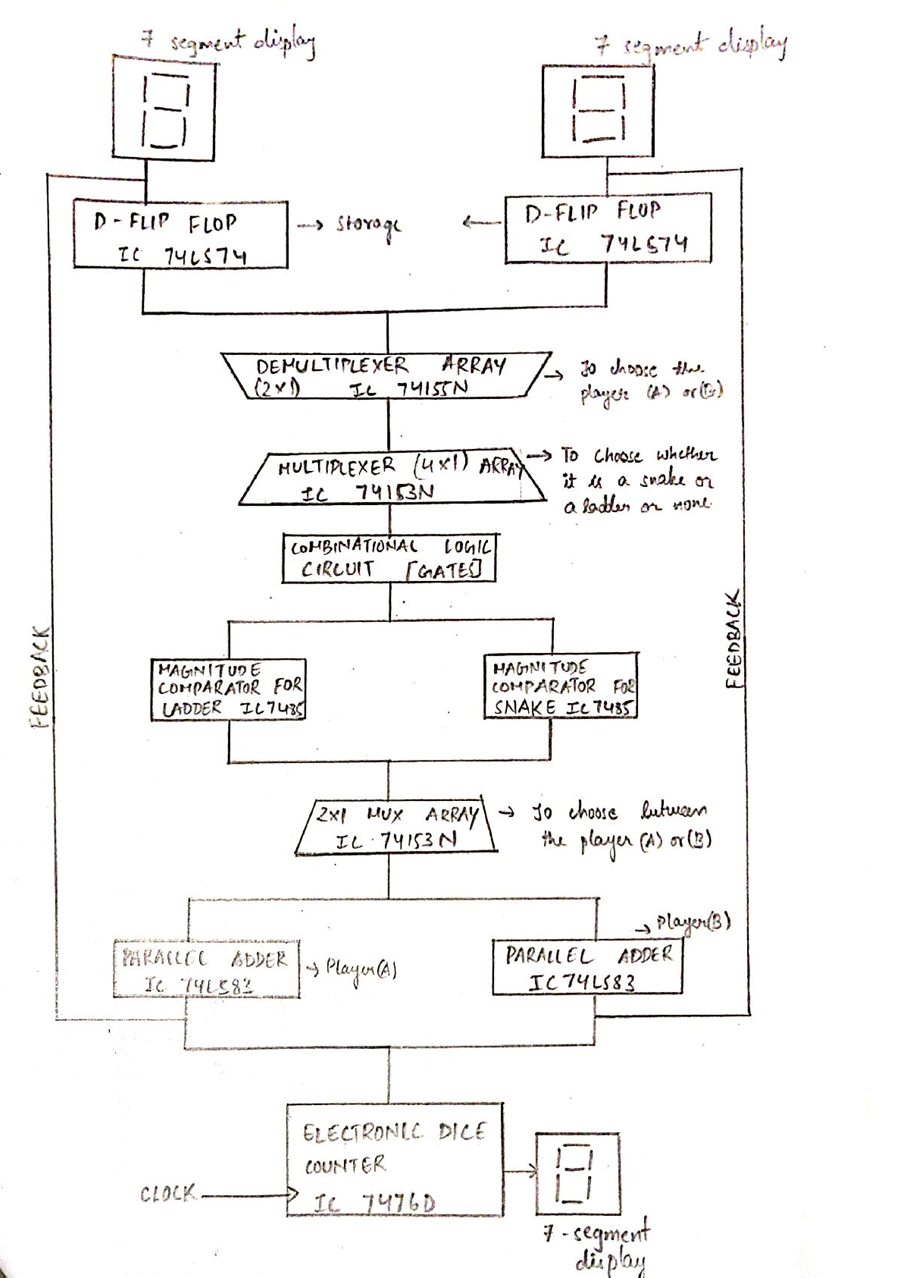 7 segment display
7 segment display
D-FLIP FLOP
IC 74LS74
→ Storage ←
D-FLIP FLOP
IC 74LS74
DEMULTIPLEXER ARRAY
(2x1) IC 74155N
→ To choose the
player (A) or (B)
MULTIPLEXER (4x1) ARRAY
IC 74153N
→ To choose whether
it is a snake or
a ladder or none.
COMBINATIONAL LOGIC
CIRCUIT [GATES]
FEEDBACK
FEEDBACK
MAGNITUDE
COMPARATOR FOR
LADDER IC7485
MAGNITUDE
COMPARATOR FOR
SNAKE IC7485
2x1 MUX ARRAY
IC 74153N
→ To choose between
the player (A) or (B)
PARALLEL ADDER
IC 74LS83
→ Player(A)
→ Player(B)
PARALLEL ADDER
IC 74LS83
ELECTRONIC DICE
COUNTER
IC 7476D
CLOCK
7-segment
display